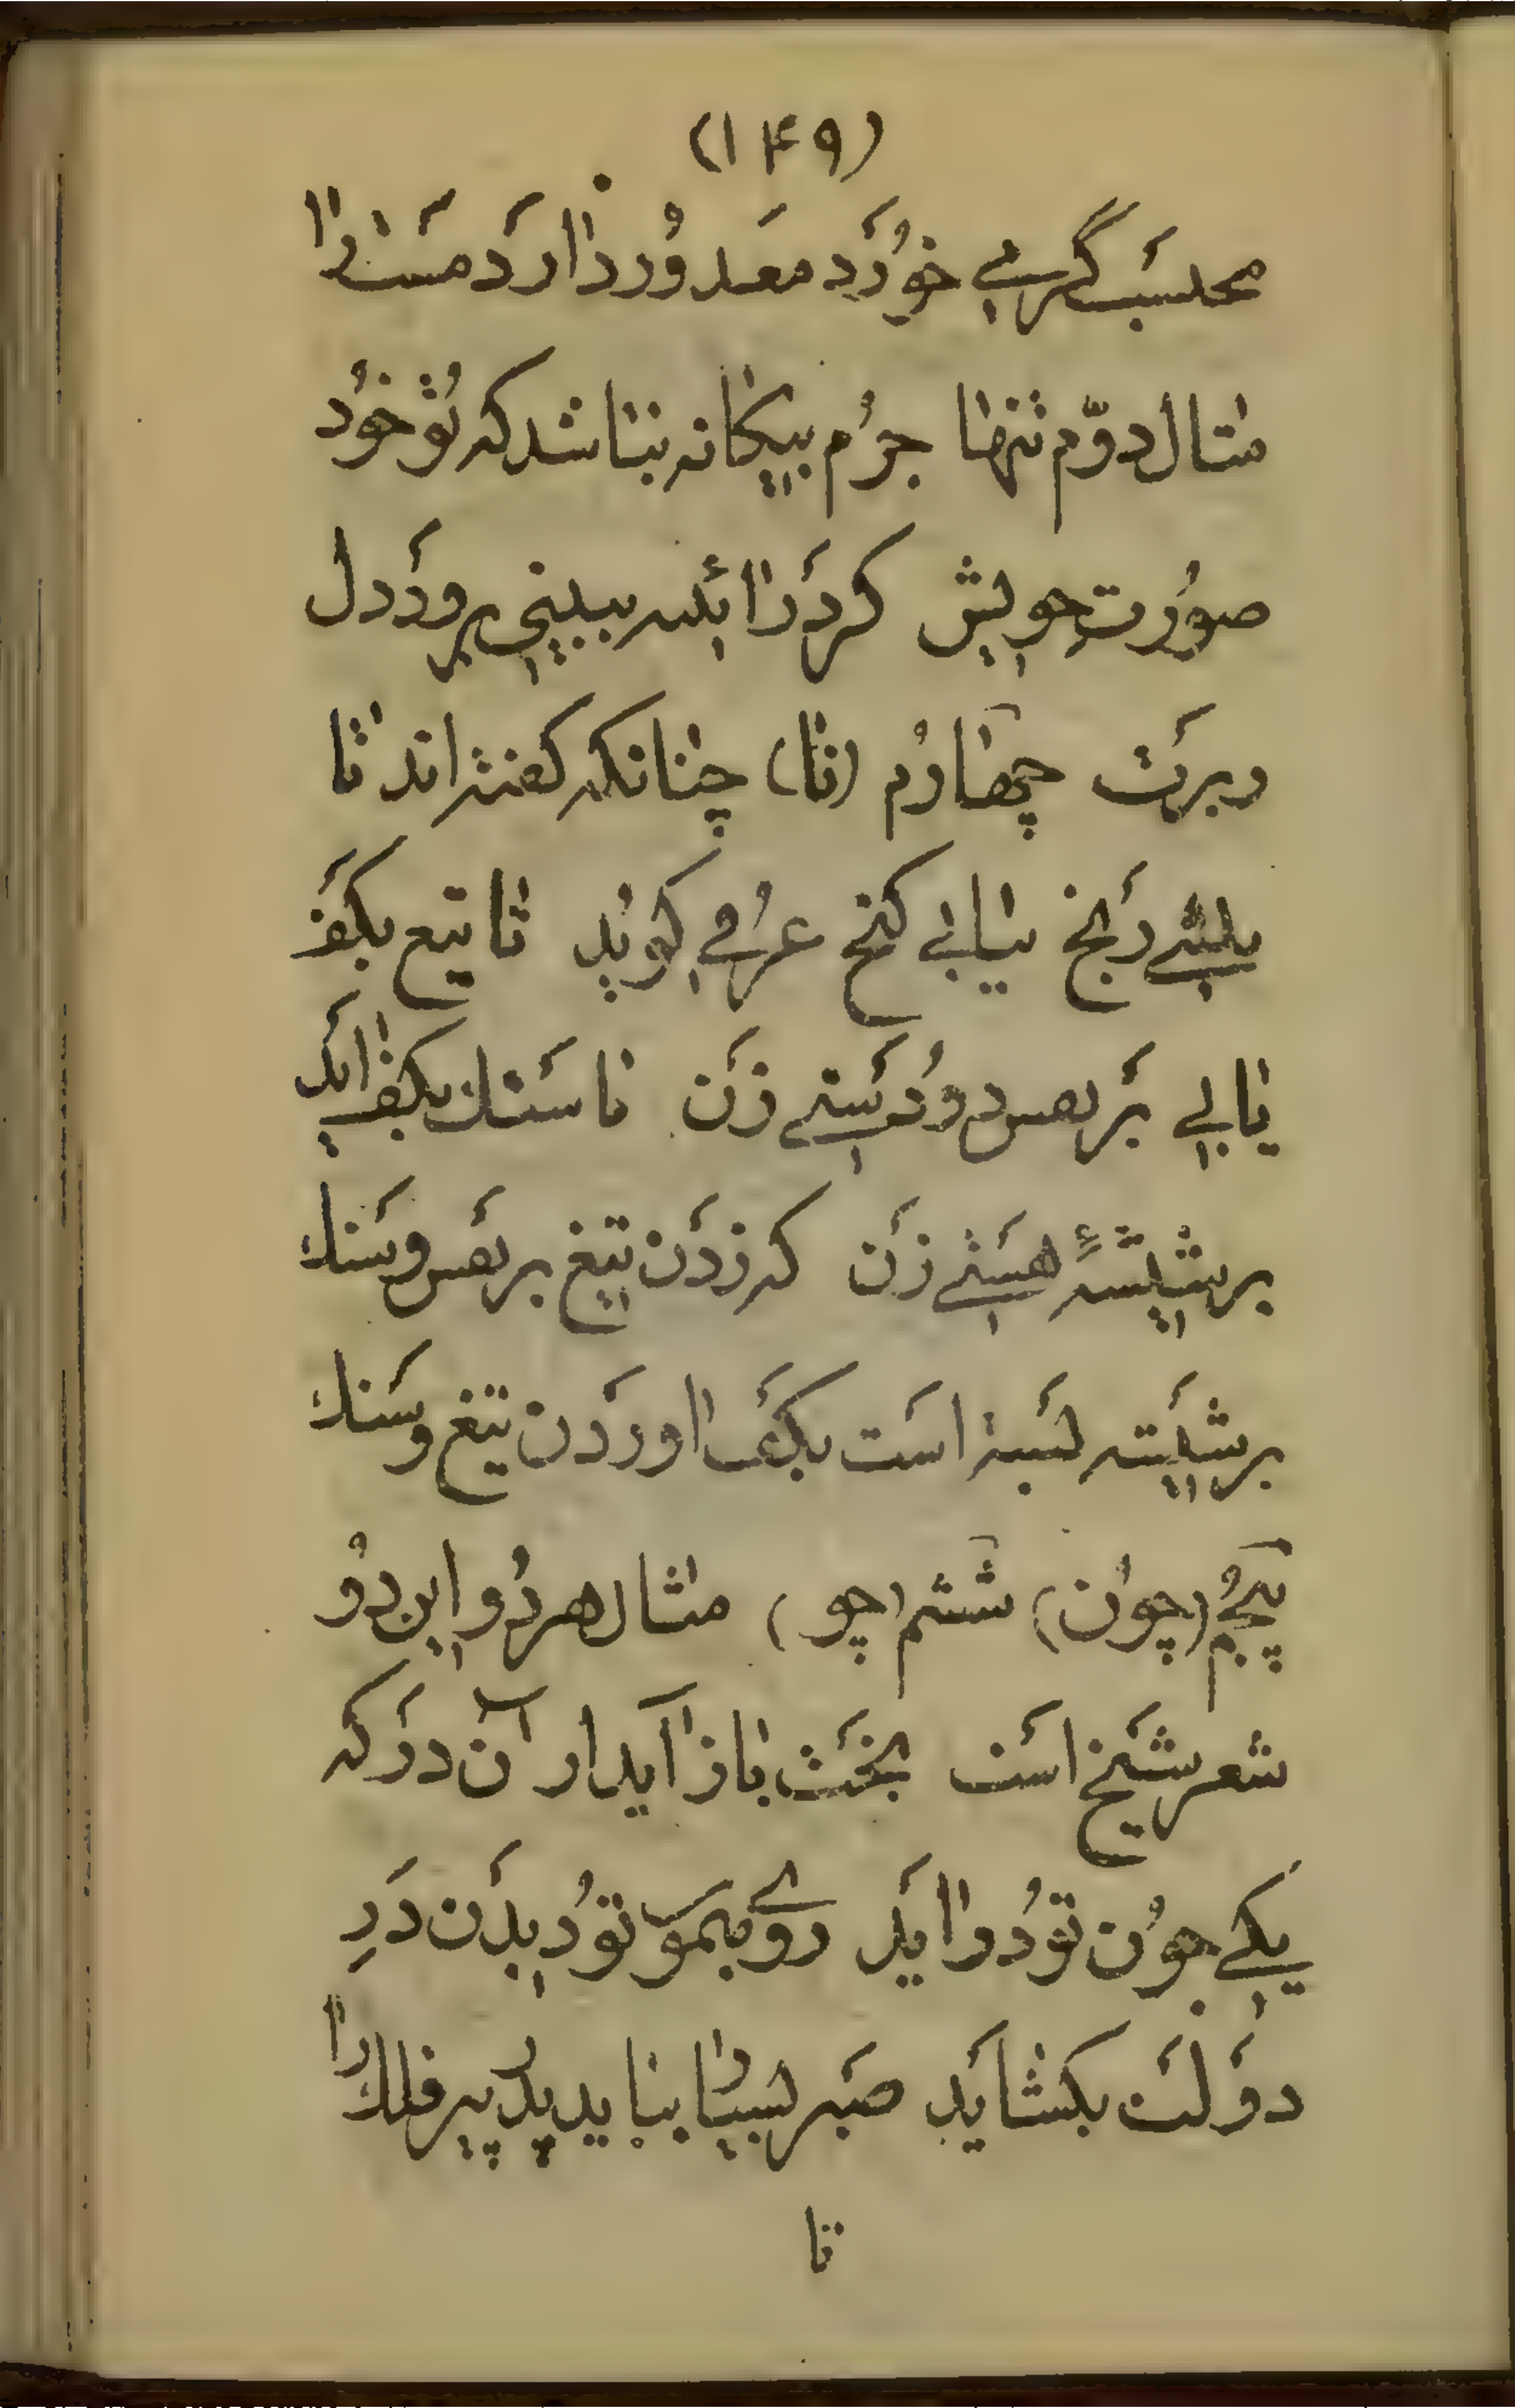 (۱۴۹)
محتسب گر می خورد معذور دارد مست را
مثال دوّم تنها جرم بیکانه نباشد که تو خود
صورت خویش کر در آئینه ببینی برود دل
وبرت چهارم (تا) چنانکه کفته اند تا
رنج نیابی کنج عرفی کوید تا تیغ بکف
یابی بر نفس دو دستی زن تا سنک بکف آید
بر شیشهٔ هستی زن که زدن تیغ بر نفس و سنک
بر شیشه بسته است بکف آوردن تیغ و سنک
پنجم (چون) ششم (چو) مثال هر دو این دو
شعر شیخ است بخت باز آید از آن در که
یکی چون تو در آید روی میمون تو دیدن درِ
دولت بکشاید صبر بسیار بباید پدر پیر فلك را
تا